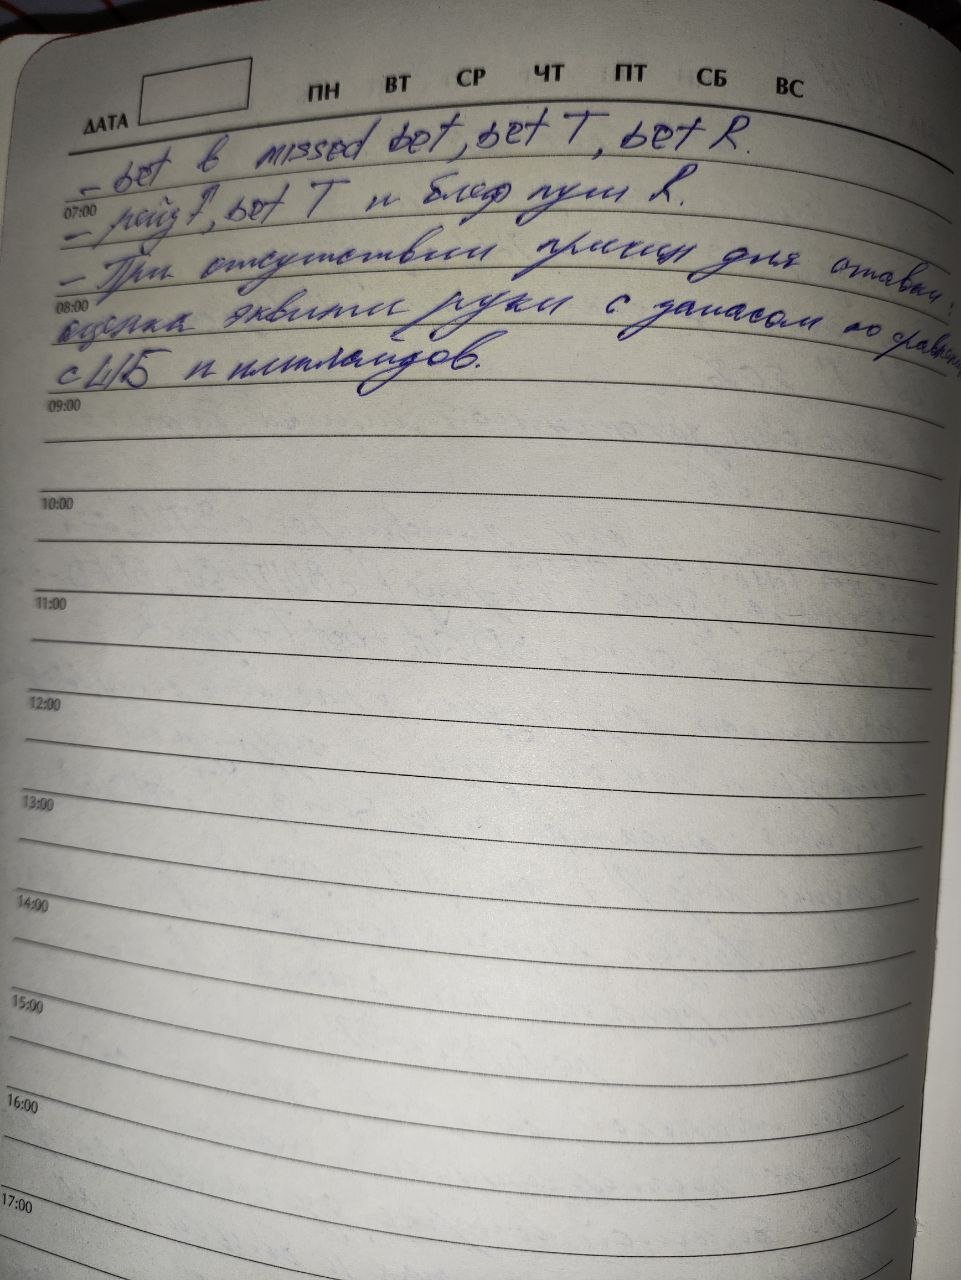 ДАТА ПН ВТ СР ЧТ ПТ СБ ВС
- bet в missed bet, bet T, bet R.
07:00
- рейз F, bet T и блеф пуш R.
- При отсутствии причин для ставки:
08:00
оценка эквити руки с запасом по сравнению
с ШБ и имплайдов.
09:00
10:00
11:00
12:00
13:00
14:00
15:00
16:00
17:00